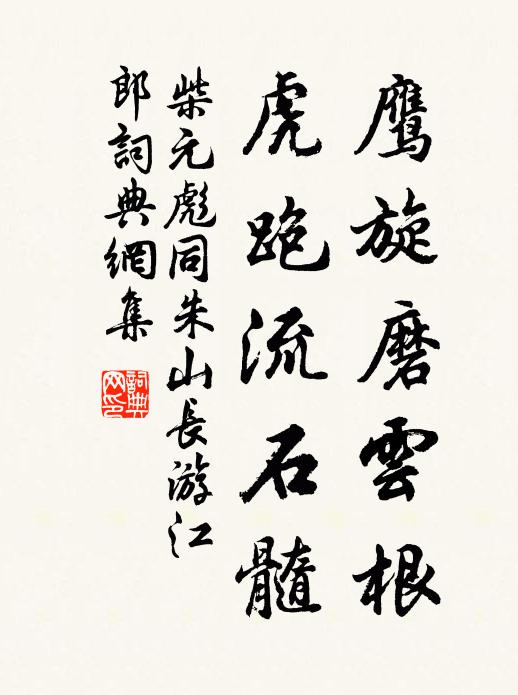 鹰旋磨雲根
虎跑流石髓
柴元彪同朱山長游江
郎詞典網集
詞典
网印